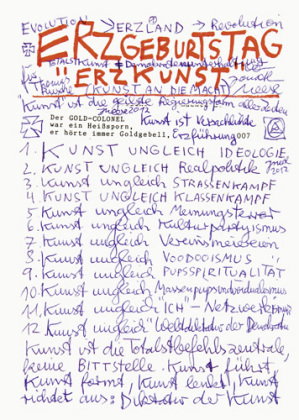 EVOLUTION → ERZLAND → Revolution
ERZGEBURTSTAG
TOTALSTKUNST =
"ERZKUNST"
für
KUNST AN DIE MACHT
Meese
"Kunst" ist die geilste Regierungsform aller Zeiten
2012
Der GOLD-COLONEL
war ein Heißsporn,
er hörte immer Goldgebell,
Kunst ist Verschlußsache
Erzführung 007
1. KUNST UNGLEICH IDEOLOGIE
2012
2. KUNST UNGLEICH Realpolitik
3. Kunst ungleich STRASSENKAMPF
4. KUNST UNGLEICH KLASSENKAMPF
5 Kunst ungleich Meinungsterror
6. Kunst ungleich
7 Kunst ungleich Vereinsmeiereien
8. Kunst ungleich VOODOOISMUS
9. Kunst ungleich PUPSSPIRITUALITÄT
10. Kunst ungleich
11. Kunst ungleich "ICH" - Netzwerkerei
12 Kunst ungleich Weltdiktatur der Demokratie
Kunst ist die Totalstbefehlszentrale,
keine BITTSTELLE. Kunst führt,
Kunst formt, Kunst leitet, Kunst
richtet aus: Diktatur der Kunst